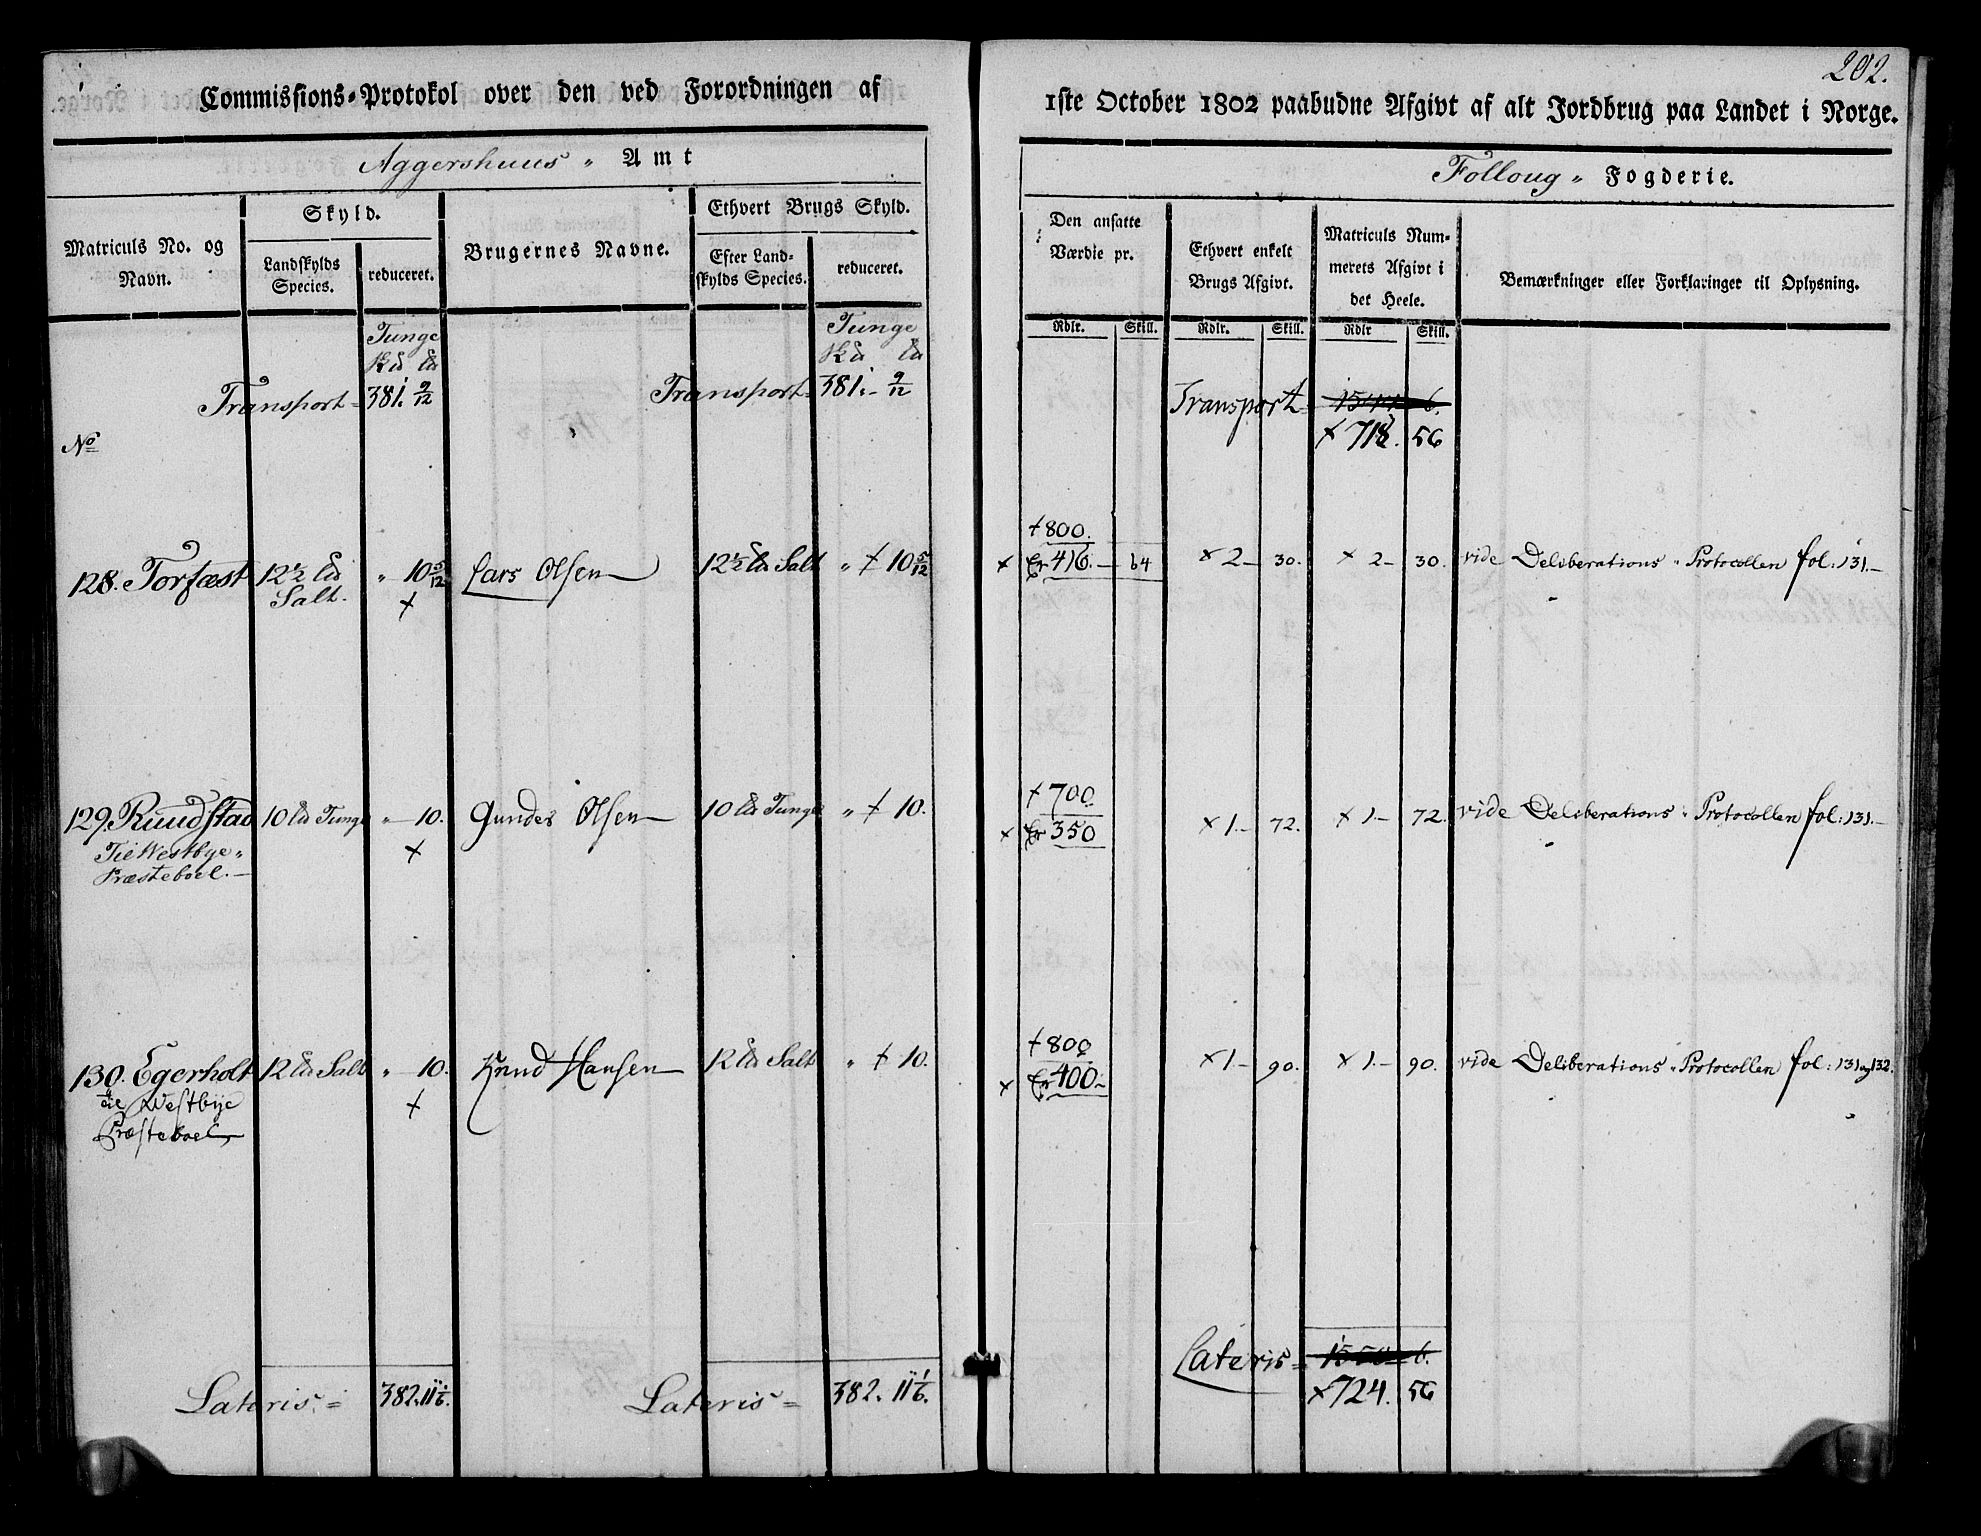 202.
Commissions-Protokol over den ved Forordningen af 1ste October 1802 paabudne Afgivt af alt Jordbrug paa Landet i Norge.
Aggershuus " Amt
Folloug " Fogderie.
Matriculs No. og Navn.
Skyld.
Landskylds Species.
reduceret.
Brugernes Navne.
Ethvert Brugs Skyld.
Efter Landskylds Species.
reduceret.
Den ansatte Værdie pr.
Ethvert enkelt Brugs Afgivt.
Matriculs Nummerets Afgivt i det Heele.
Bemærkninger eller Forklaringer til Oplysning.
Rdlr. Skill. Rdlr. Skill. Rdlr Skill.
Tunge Tunge
Transport = 381. 9/12 Transport = 381. - 9/12 Transport = 6.
× 718. 56
No
† 800.
128. Torfæst 12½ Salt. " 10 5/12 Lars Olsen 12½ Salt " † 10 5/12 × 416. - 64 × 2 - 30. × 2 - 30. vide Deliberations " Protocollen fol: 131. -
×
† 700.
129. Ruudstad 10 Tunge " - 10. Gunder Olsen 10 Tunge " † 10. × 350 × 1. - 72. × 1 - 72. vide Deliberations " Protocollen fol: 131. -
Til Westbye "
Præsteboel. -
×
† 800
130. Egerholt 12 Salt " - 10. Knud Hansen 12 Salt " † 10. × 400 - × 1 - 90. × 1. - 90. vide Deliberations " Protocollen fol: 131 og 132.
til Westbye
Præsteboel
×
Lateris = 382. 11 1/6. Lateris = 382. 11 1/6. Lateris = 6.
× 724. 56